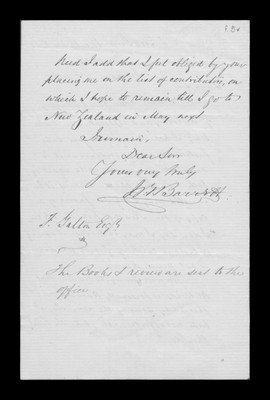 Need I add that I felt obliged by your
placing me on the list of contributors, on
which I hope to remain till I go to
New Zealand in May next
I remain,
Dear Sir
Yours very truly
F. Galton Esqre
The Books I review are sent to the
office.